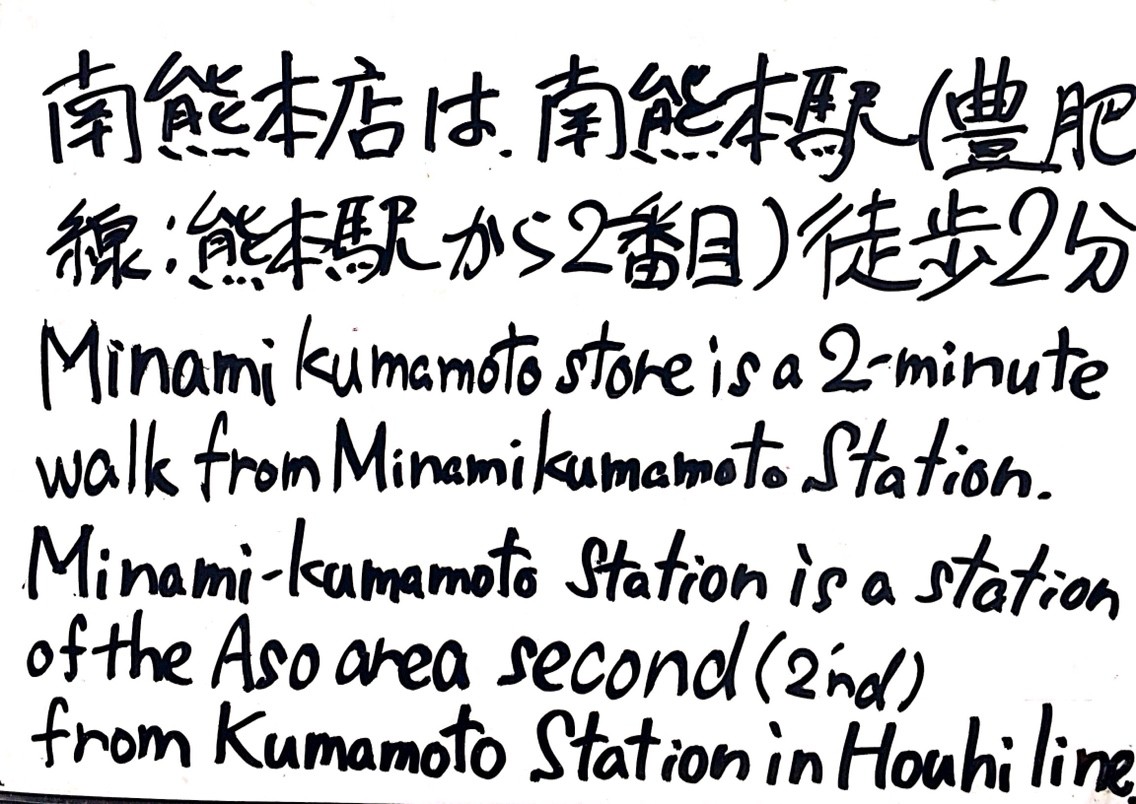 南熊本店は、南熊本駅(豊肥
線:熊本駅から2番目)徒歩2分
Minami kumamoto store is a 2-minute
walk from Minamikumamoto Station.
Minami-kumamoto Station is a station
of the Aso area second (2'nd)
from Kumamoto Station in Houhi line.